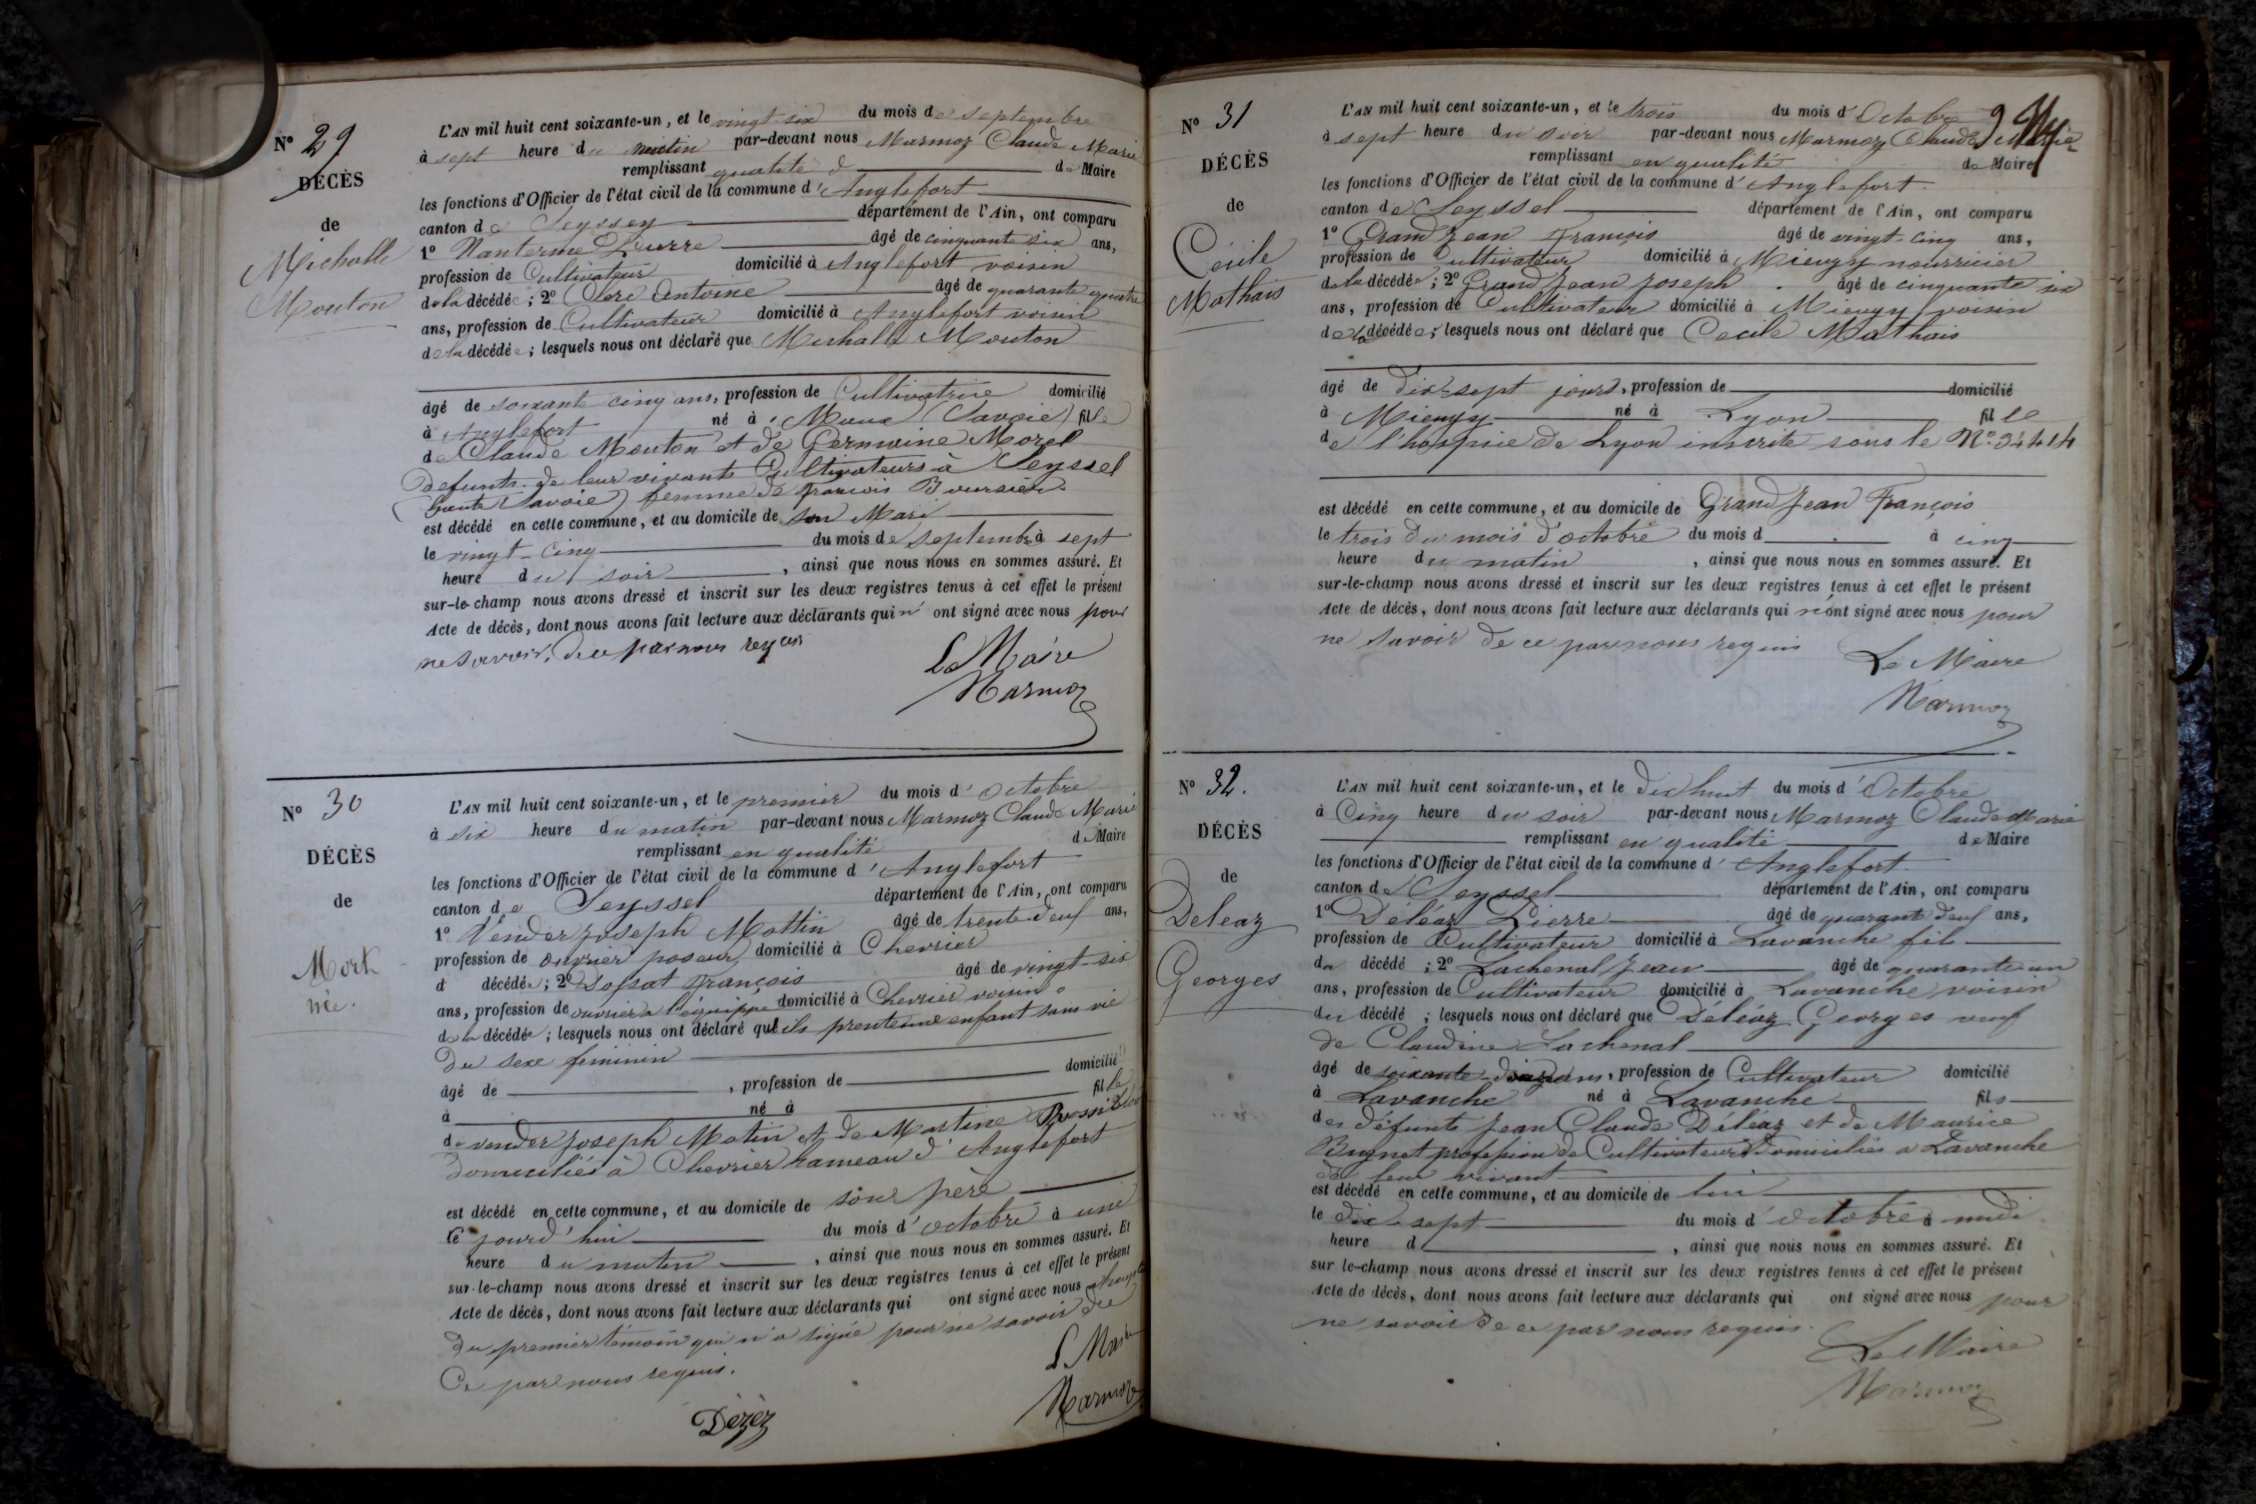 N° 29
DÉCÈS
de
Michalle
Mouton
L'AN mil huit cent soixante-un, et le vingt six du mois de septembre
à sept heure du matin par-devant nous Marmoz Claude Marie
remplissant qualité d de Maire
les fonctions d'Officier de l'état civil de la commune d'Anglefort
canton de Seyssey département de l'Ain, ont comparu
1° Nanterme Pierre âgé de cinquante six ans,
profession de Cultivateur domicilié à Anglefort voisin
de la décédée ; 2° Clerc Antoine âgé de quarante quatre
ans, profession de Cultivateur domicilié à Anglefort voisin
de la décédée ; lesquels nous ont déclaré que Michalle Mouton
âgé de soixante cinq ans, profession de Cultivatrice domicilié
à Anglefort né à (Savoie) fille
de Claude Mouton et de Germaine Morel
defunts de leur vivants Cultivateurs à Seyssel
(haute Savoie) femme de francois Boursier
est décédé en cette commune, et au domicile de son Mari
le vingt-cinq du mois de septembre à sept
heure du soir , ainsi que nous nous en sommes assuré. Et
sur-le-champ nous avons dressé et inscrit sur les deux registres tenus à cet effet le présent
Acte de décès, dont nous avons fait lecture aux déclarants qui n' ont signé avec nous pour
ne savoir, de ce par nous requis
Le Maire
Marmoz
N° 30
DÉCÈS
de
Mort
née.
L'AN mil huit cent soixante-un, et le premier du mois d'Octobre
à six heure du matin par-devant nous Marmoz Claude Marie
remplissant en qualité de Maire
les fonctions d'Officier de l'état civil de la commune d'Anglefort
canton de Seyssel département de l'Ain, ont comparu
1° Vender Joseph Mottin âgé de trente-deuf ans,
profession de ouvrier poseur domicilié à Chevrier
d décédée ; 2° François âgé de vingt-six
ans, profession de ouvrier a l'équippe domicilié à Chevrier voisin
de la décédée ; lesquels nous ont déclaré que ils enfant sans vie
du sexe feminin
âgé de , profession de domicilié
à né à fille
de vender Joseph Motin et de Martine
domiciliés à Chevrier hameau d'Anglefort
est décédé en cette commune, et au domicile de son père
le jourd'hui du mois d'octobre à une
heure du matin , ainsi que nous nous en sommes assuré. Et
sur-le-champ nous avons dressé et inscrit sur les deux registres tenus à cet effet le présent
Acte de décès, dont nous avons fait lecture aux déclarants qui ont signé avec nous
du premier témoin qui n'a signé pour ne savoir de
Ce par nous requis.
L Maire
Marmoz
Dézéz
N° 31
DÉCÈS
de
Cécile
Mathais
L'AN mil huit cent soixante-un, et le trois du mois d'Octobre
à sept heure du soir par-devant nous Marmoz Claude Marie
remplissant en qualité de Maire
les fonctions d'Officier de l'état civil de la commune d'Anglefort
canton de Seyssel département de l'Ain, ont comparu
1° Grand Jean François âgé de vingt-cinq ans,
profession de Cultivateur domicilié à Mieugy nourricier
de la décédée ; 2° Grand Jean Joseph âgé de cinquante six
ans, profession de Cultivateur domicilié à Mieugy voisin
de la décédée ; lesquels nous ont déclaré que Cecile Mathais
âgé de dix-sept jours, profession de domicilié
à Mieugy né à Lyon fille
de l'hospice de Lyon inscrite sous le N° 34414
est décédé en cette commune, et au domicile de Grand Jean François
le trois du mois d'octobre du mois d à cinq
heure du matin , ainsi que nous nous en sommes assuré. Et
sur-le-champ nous avons dressé et inscrit sur les deux registres tenus à cet effet le présent
Acte de décès, dont nous avons fait lecture aux déclarants qui n'ont signé avec nous pour
ne savoir de ce par nous requis
Le Maire
Marmoz
N° 32.
DÉCÈS
de
Deleaz
Georges
L'AN mil huit cent soixante-un, et le dix huit du mois d'Octobre
à Cinq heure du soir par-devant nous Marmoz Claude Marie
remplissant en qualité de Maire
les fonctions d'Officier de l'état civil de la commune d'Anglefort
canton de Seyssel département de l'Ain, ont comparu
1° Déléaz Pierre âgé de quarant deuf ans,
profession de Cultivateur domicilié à Lavanche fils
du décédé ; 2° Lachenal Jean âgé de quarante un
ans, profession de Cultivateur domicilié à Lavanche voisin
du décédé ; lesquels nous ont déclaré que Déléaz Georges veuf
de Claudine Lachenal
âgé de soixante ans, profession de Cultivateur domicilié
à Lavanche né à Lavanche fils
des défunts Jean Claude Déléaz et de Maurice
Bugnet profession de Cultivateurs domiciliés a Lavanche
de leur vivant
est décédé en cette commune, et au domicile de lui
le dix-sept du mois d'octobre à midi
heure d , ainsi que nous nous en sommes assuré. Et
sur le-champ nous avons dressé et inscrit sur les deux registres tenus à cet effet le présent
Acte de décès, dont nous avons fait lecture aux déclarants qui ont signé avec nous pour
ne savoir de ce par nous requis.
Le Maire
Marmoz